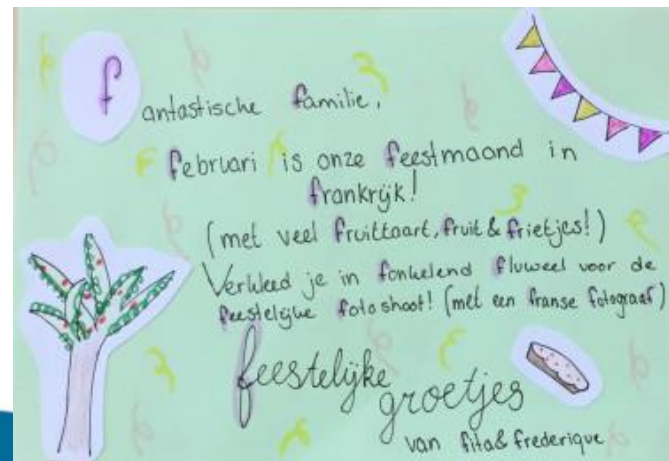 fantastische familie,
februari is onze feestmaand in
frankrijk!
(met veel fruittaart, fruit & frietjes!)
Verkleed je in fonkelend fluweel voor de
feestelijke fotoshoot! (met een franse fotograaf)
feestelijke
groetjes
van fita & frederique